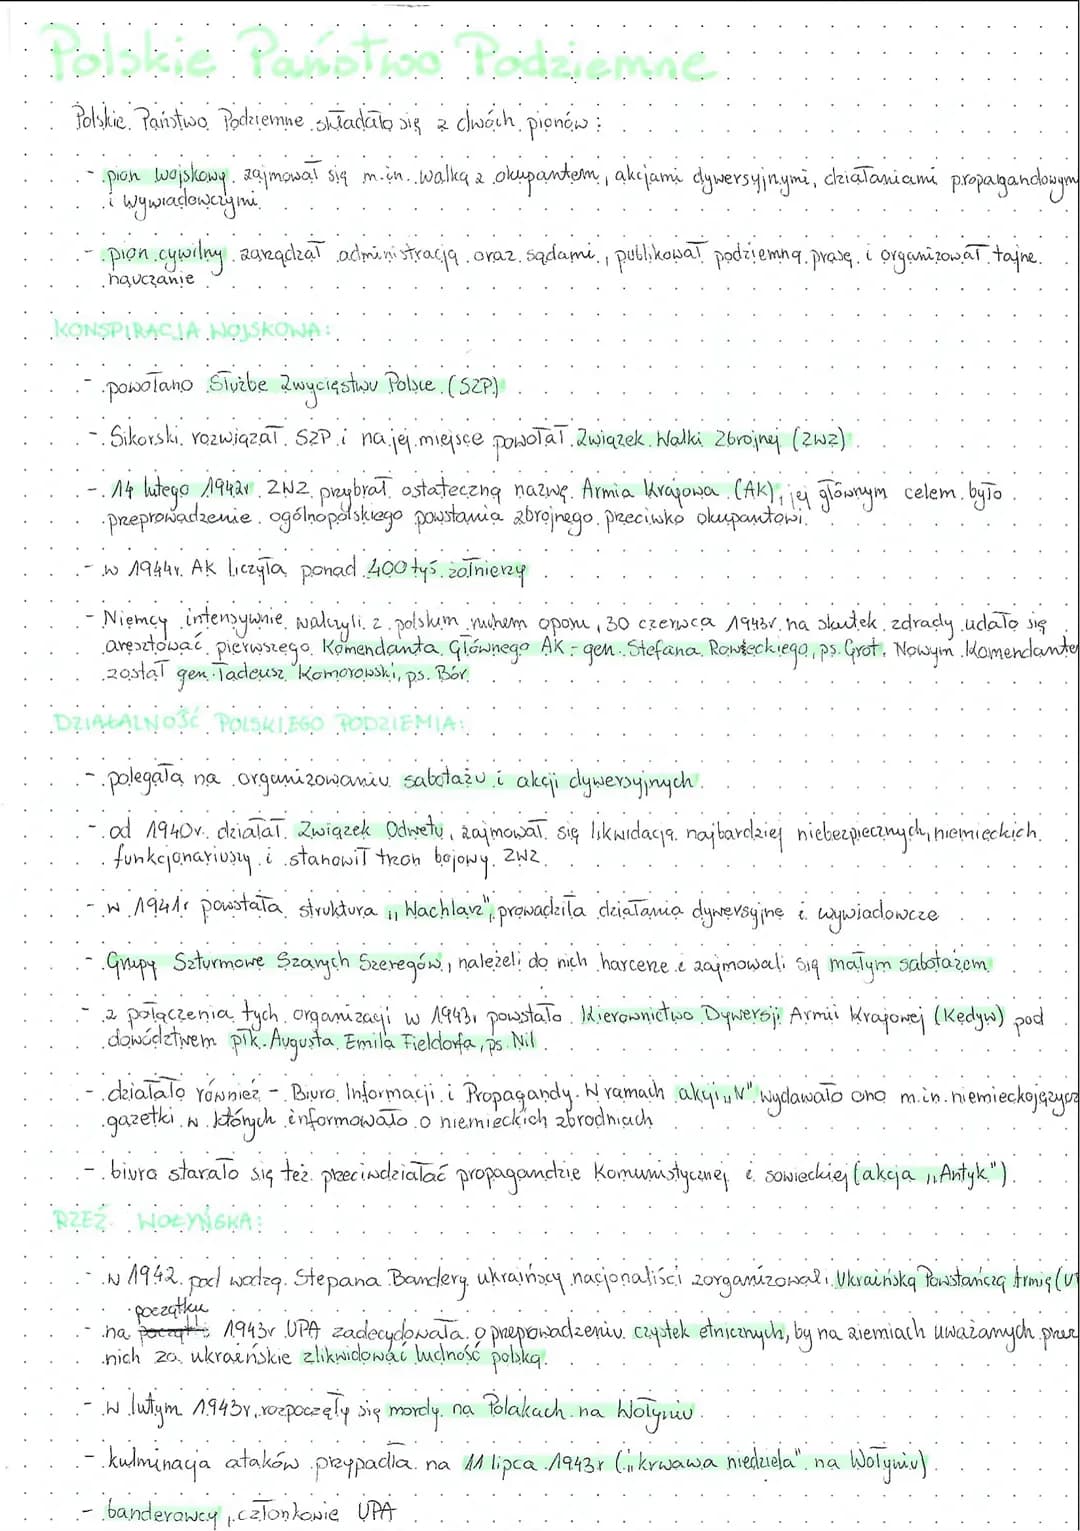 Polskie Państwo Podziemne
Polskie Państwo Podziemne składało się z dwóch pionów:
- pion wojskowy zajmował się m.in. walką z okupantem, akcjami dywersyjnymi, działaniami propagandowym
i wywiadowczymi
- pion cywilny zarządzał administracją oraz sądami, publikował podziemną prasę i organizował tajne
nauczanie
KONSPIRACJA WOJSKOWA:
- powołano Służbę Zwycięstwu Polsce (SZP)
- Sikorski rozwiązał SZP i na jej miejsce powołał Związek Walki Zbrojnej (ZWZ)
- 14 lutego 1942r ZWZ przybrał ostateczną nazwę Armia Krajowa (AK), jej głównym celem było
przeprowadzenie ogólnopolskiego powstania zbrojnego przeciwko okupantowi.
- w 1944r. AK liczyła ponad 400 tyś. żołnierzy
- Niemcy intensywnie walczyli z polskim ruchem oporu, 30 czerwca 1943r. na skutek zdrady udało się
aresztować pierwszego Komendanta Głównego AK - gen. Stefana Roweckiego, ps. Grot. Nowym Komendante
został gen. Tadeusz Komorowski, ps. Bór.
DZIAŁALNOŚĆ POLSKIEGO PODZIEMIA:
- polegała na organizowaniu sabotażu i akcji dywersyjnych.
- od 1940r. działał Związek Odwetu, zajmował się likwidacją najbardziej niebezpiecznych, niemieckich
funkcjonariuszy i stanowił trzon bojowy ZWZ
- w 1941r powstała struktura „Wachlarz", prowadziła działania dywersyjne i wywiadowcze
- Grupy Szturmowe Szarych Szeregów, należeli do nich harcerze i zajmowali się małym sabotażem
- z połączenia tych organizacji w 1943r powstało Kierownictwo Dywersji Armii Krajowej (Kedyw) pod
dowództwem płk. Augusta Emila Fieldorfa, ps. Nil
- działało również - Biuro Informacji i Propagandy. W ramach akcji „N" wydawało ono m.in. niemieckojęzycz
gazetki w których informowało o niemieckich zbrodniach
- biuro starało się też przeciwdziałać propagandzie komunistycznej i sowieckiej (akcja „Antyk").
RZEŹ WOŁYŃSKA:
- w 1942 pod wodzą Stepana Bandery ukraińscy nacjonaliści zorganizowali Ukraińską Powstańczą Armię (U
początku
- na 1943r UPA zadecydowała o przeprowadzeniu czystek etnicznych, by na ziemiach uważanych przez
nich za ukraińskie zlikwidować ludność polską.
- w lutym 1943r. rozpoczęły się mordy na Polakach na Wołyniu.
- kulminacja ataków przypadła na 11 lipca 1943r („krwawa niedziela" na Wołyniu)
- banderowcy, członkowie UPA